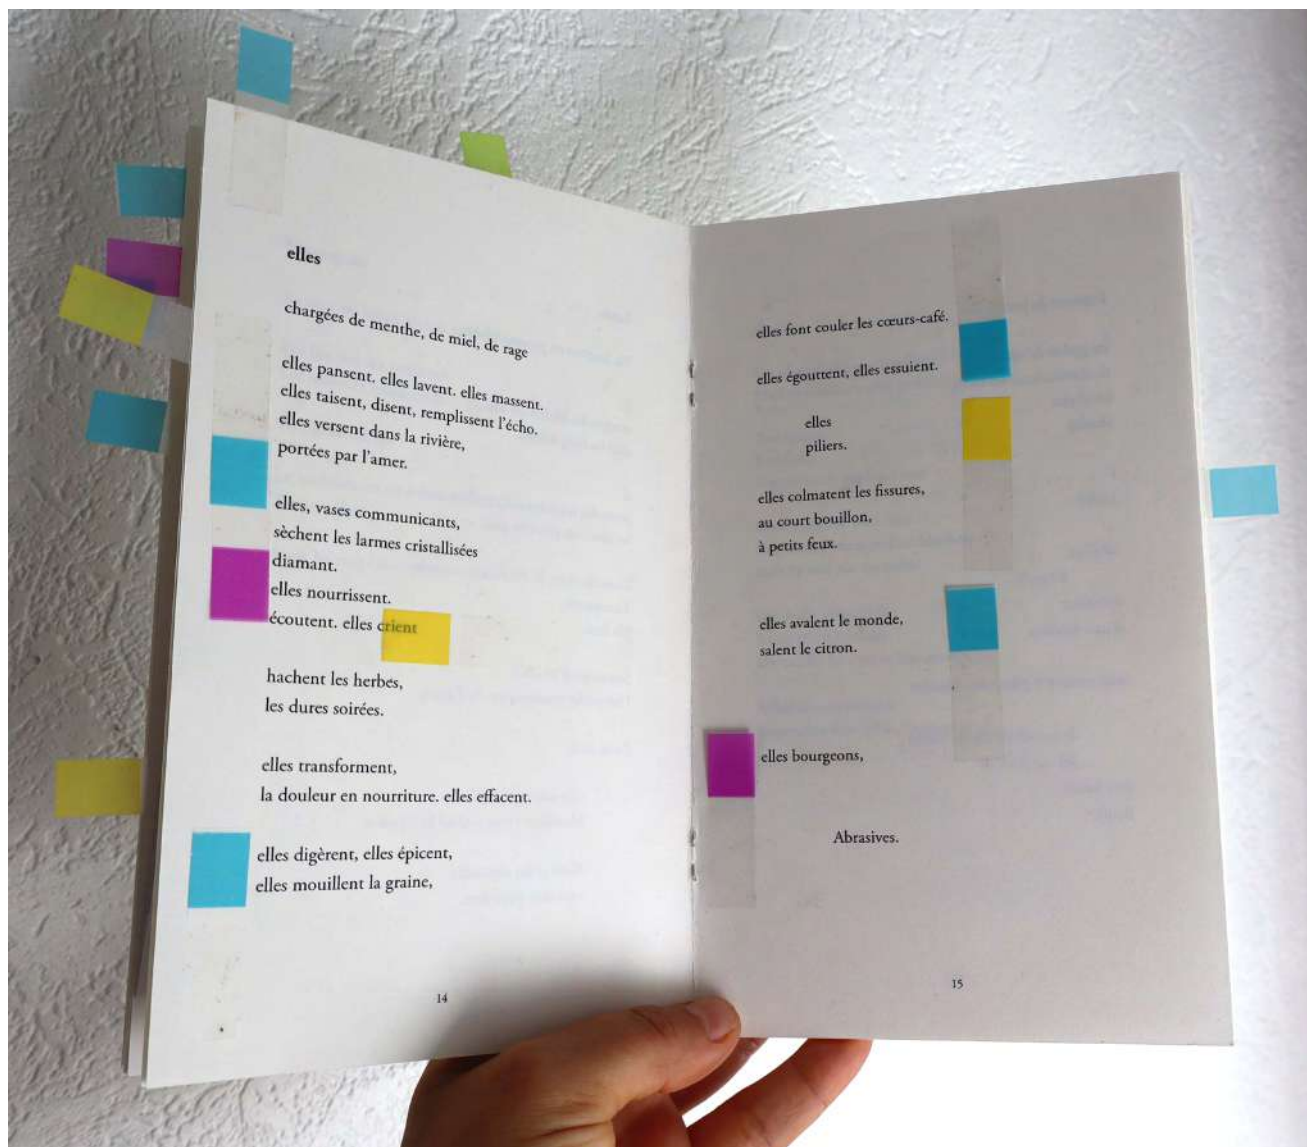 elles
chargées de menthe, de miel, de rage
elles pansent. elles lavent. elles massent.
elles taisent, disent, remplissent l'écho.
elles versent dans la rivière,
portées par l'amer.
elles, vases communicants,
sèchent les larmes cristallisées
diamant.
elles nourrissent.
écoutent. elles crient
hachent les herbes,
les dures soirées.
elles transforment,
la douleur en nourriture. elles effacent.
elles digèrent, elles épicent,
elles mouillent la graine,
14
elles font couler les cœurs-café.
elles égouttent, elles essuient.
elles
piliers.
elles colmatent les fissures,
au court bouillon,
à petits feux.
elles avalent le monde,
salent le citron.
elles bourgeons,
Abrasives.
15